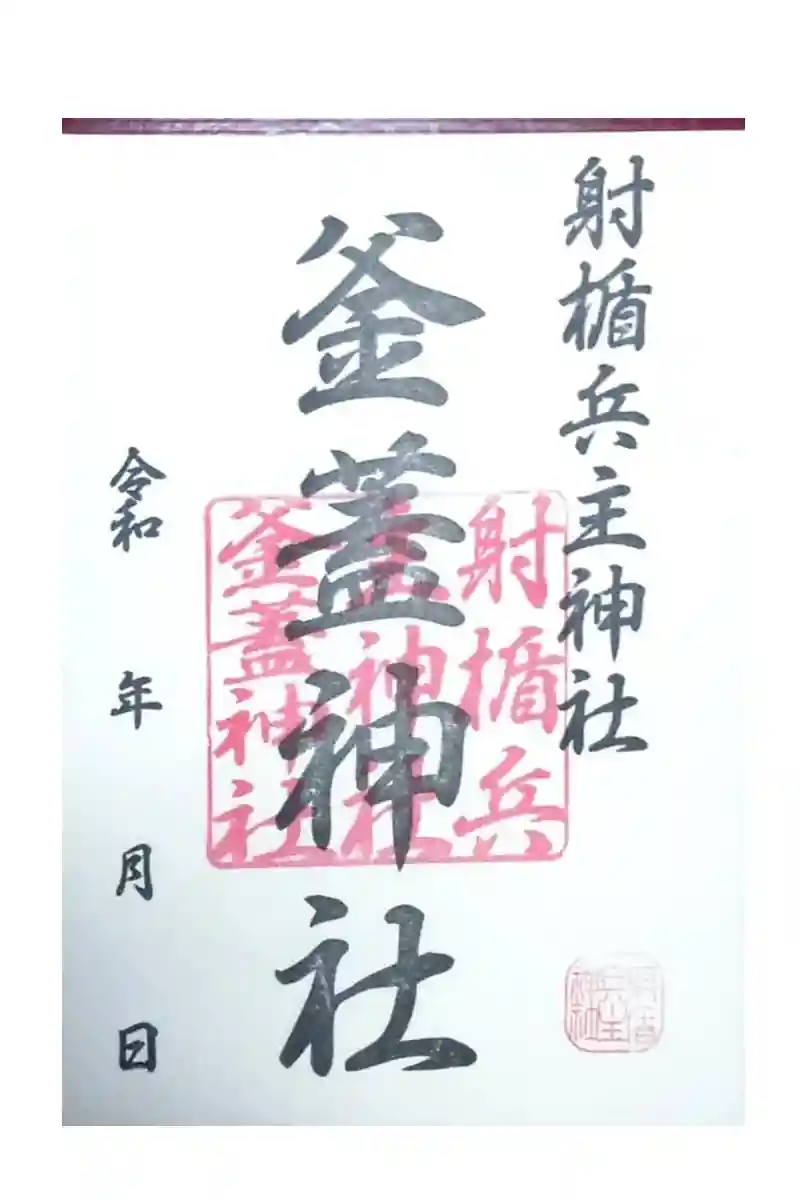 射楯兵主神社
釜蓋神社
令和 年 月 日
射楯兵
主神社
釜蓋神社